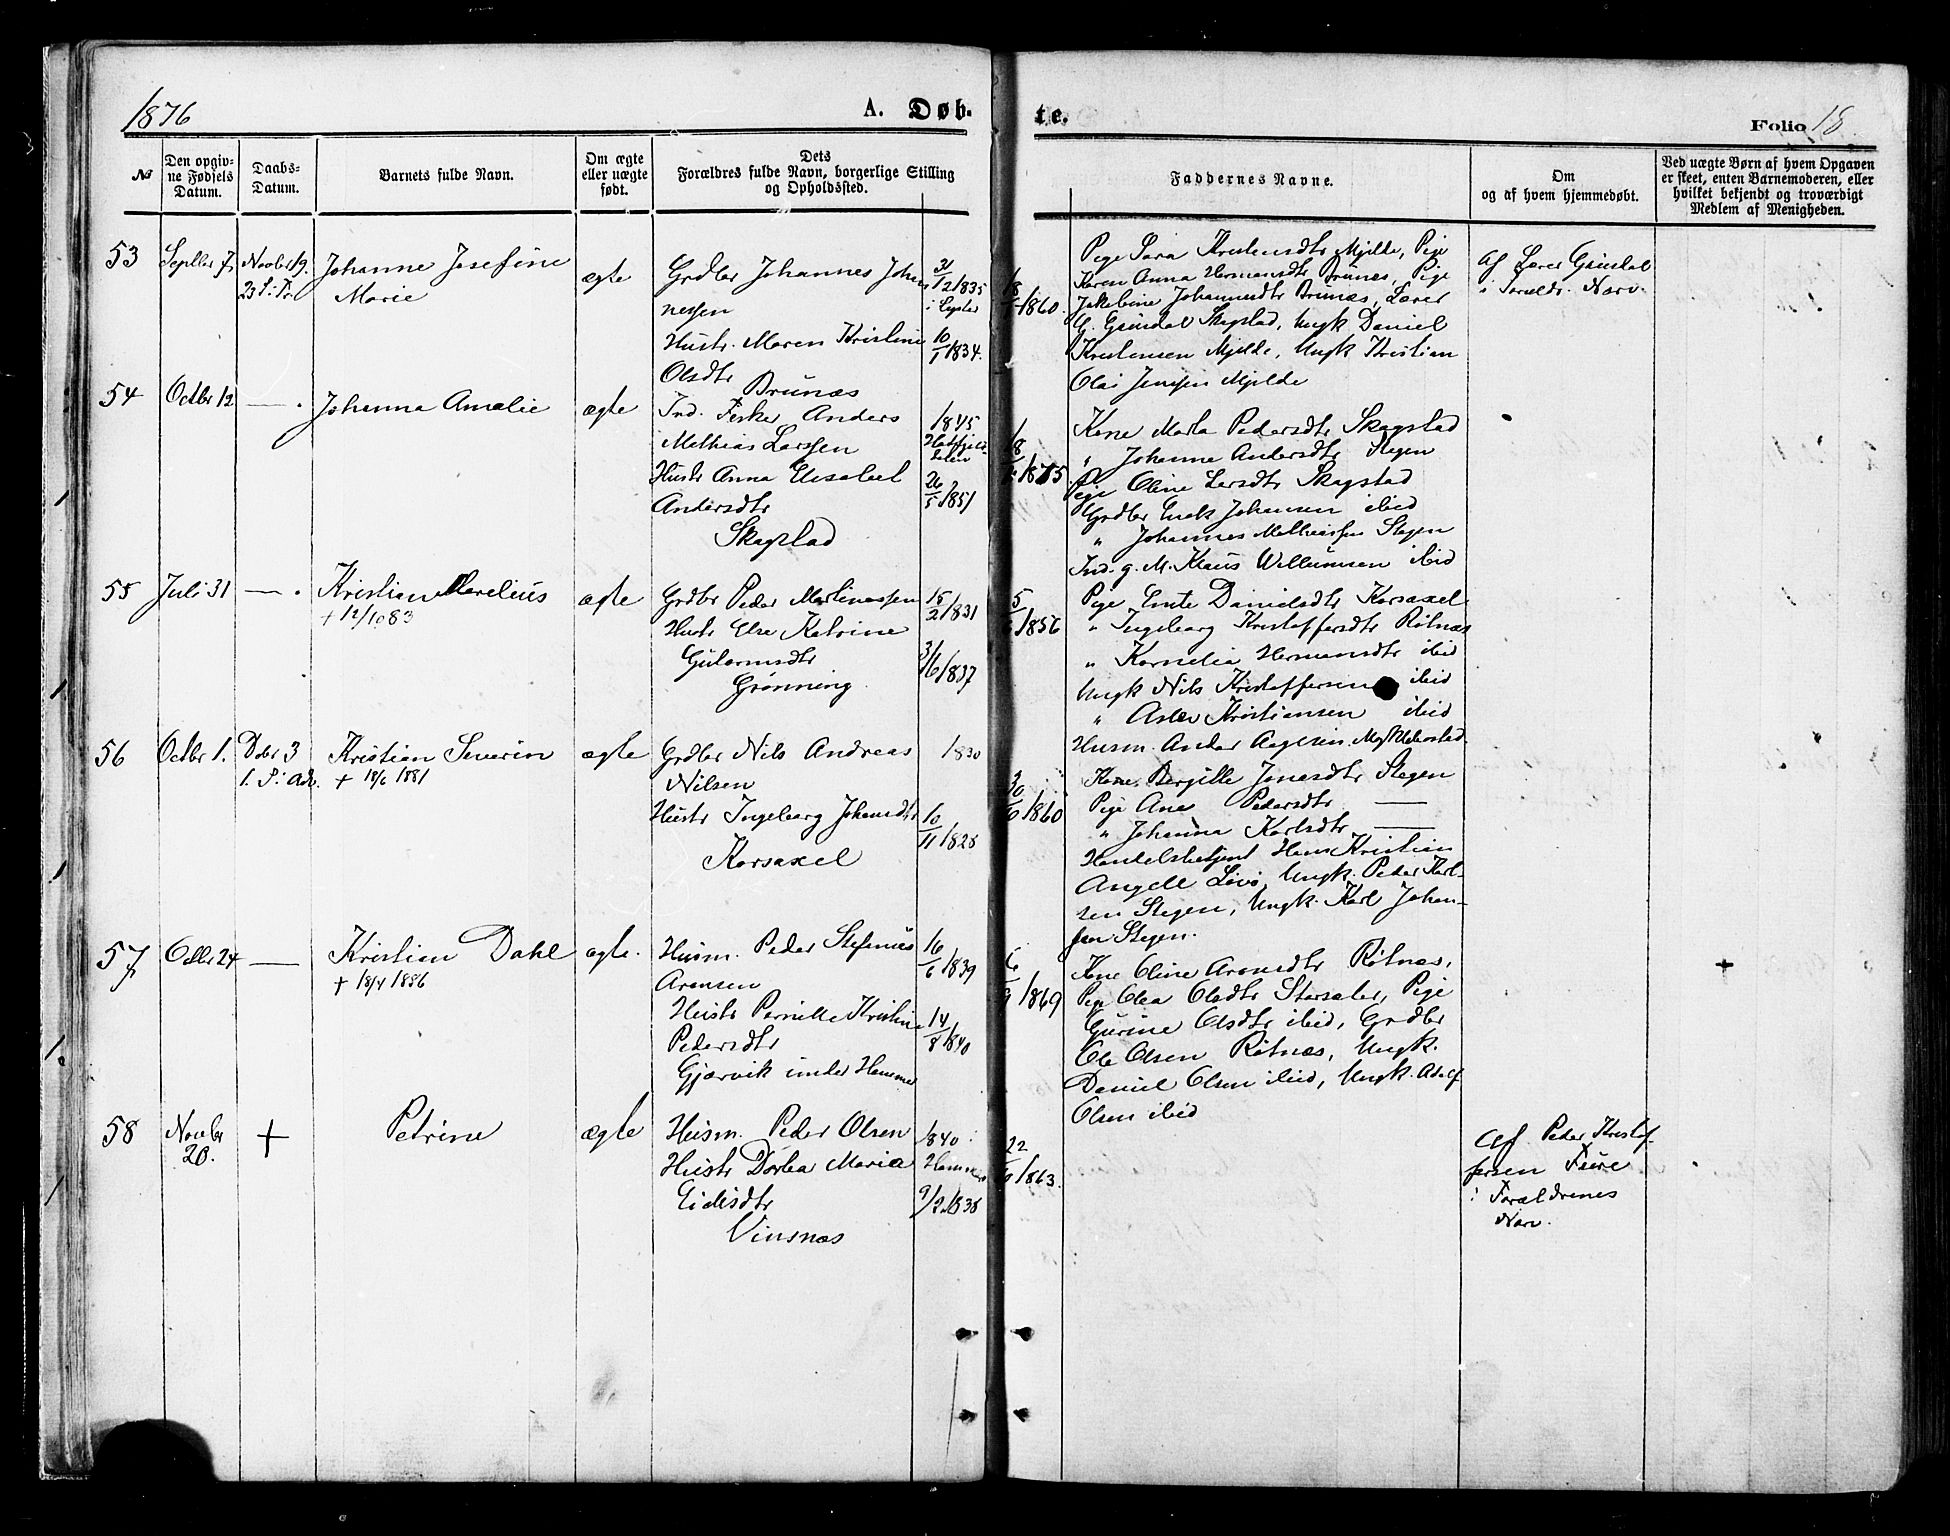 1876
A. Døb-
te.
Folio 18.
No
Den opgiv-
ne Fødsels
Datum.
Daabs-
Datum.
Barnets fulde Navn.
Om ægte
eller uægte
født.
Dets
Forældres fulde Navn, borgerlige Stilling
og Opholdssted.
Faddernes Navne.
Om
og af hvem hjemmedøbt.
Ved uægte Børn af hvem Opgaven
er skeet, enten Barnemoderen, eller
hvilket bekjendt og troværdigt
Medlem af Menigheden.
53
Septbr 7
Novbr 19.
23 S: Tr
Johanne Josefine
Marie
ægte
Grdbr Johannes Johan
nessen
Hustr. Maren Kristine
Olsdtr
Brunæs
31/12 1835
10/1 1834.
1860.
Pige Sara Kristensdtr Mjelde, Pige
Karen Anna Hermansdtr Brunæs, Pige
Jakobine Johannesdtr Brunæs, Lærer
G. Grindal Skagstad, Ungk Daniel
Kristensen Mjelde, Ungk Kristian
Olai Jensen Mjelde
Af Lærer Grindal
i Foreldr. Narv.
54
Octbr 12
— .
Johanna Amalie
ægte
Ind. Fisker Anders
Mathias Larssen
Hustr Anna Elisabet
Andersdtr
Skagstad
1845
Hatfjel-
dalen
26/5 1851
1875.
Kone Marta Pedersdtr Skagstad
" Johanne Andersdtr Stegen
Pige Oline Larsdtr Skagstad
Grdbr Enok Johansen ibid
" Johannes Mathiassen Stegen
Ind. g. M. Klaus Willumsen ibid
55
Juli 31
— .
Kristian Marelius
+ 12/10 83
ægte
Grdbr Peder Martinussen
Hustr Else Katrine
Gulormsdtr
Grønning
15/2 1831
3/6 1837
1856
Pige Emte Danielsdtr Korsaxel
" Ingeborg Kristoffersdtr Røtnæs
" Kornelia Hermansdtr ibid
Ungk Nils Kristoffersen ibid
" Aslev Kristiansen ibid
Husm. Andor Aagesen
56
Octbr 1.
Dcbr 3
1. S: Adv.
Kristian Severin
+ 18/6 1881
ægte
Grdbr Nils Andreas
Nilsen
Hustr Ingeborg Johansdtr
Korsaxel
1830
10/11 1828
1860
Kone. Bergitte Jonesdtr Stegen
Pige Ane Pedersdtr —
" Johanna Karlsdtr —
Handelsbetjent Hans Kristian
Angell Løvø, Ungk. Peder Karl-
sen Stegen, Ungk. Karl Johan-
sen Stegen.
57
Octbr 24
—
Kristian Dahl
+ 18/4 1886
ægte.
Husm. Peder Stefanus
Aronsen
Hustr Pernille Kristine
Pedersdtr
Gjærvik under Hammer
16/6 1839
14/8 1840
1869
Kone Oline Aronsdtr Røtnæs,
Pige Olea Olsdtr Storsæter, Pige
Gurine Olsdtr ibid, Grdbr
Ole Olsen Røtnæs, Ungk.
Daniel Olsen ibid, Ungk. Adolf
Olsen ibid
58
Novbr
20.
+
Petrine
ægte
Husm. Peder Olsen
Hustr Dortea Maria
Eidisdtr
Vinsnæs
1840 i
Hammer
9/2 1838
1863.
Af Peder Kristof-
fersen Fure
i Forældrenes
Narv.